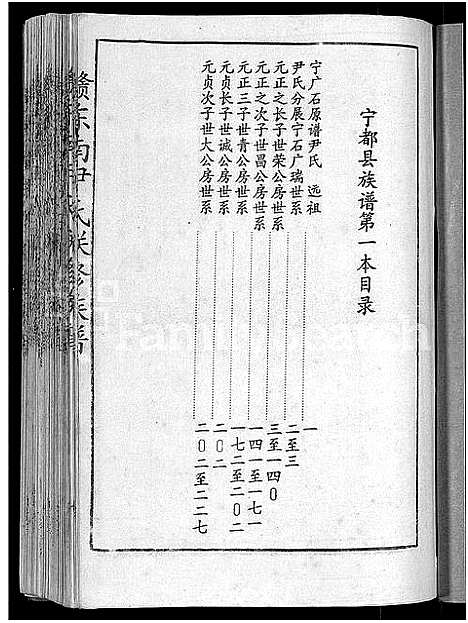 宁都县族谱第一本目录
宁广石原谱尹氏 远祖 一
尹氏分展宁石广瑞世系 二至三
元正之长子世荣公房世系 三至一四〇
元正之次子世昌公房世系 一四一至一七一
元正三子世青公房世系 一七二至二〇二
元贞长子世诚公房世系 二〇二
元贞次子世大公房世系 二〇二至二二七
赣东南尹氏联修族谱